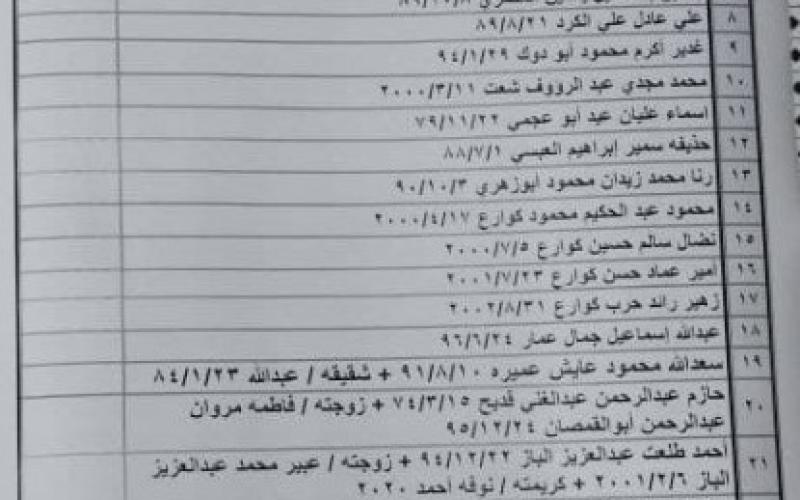 ٨ علي عادل علي الكرد ٨٩/٨/٢١
٩ غدير أكرم محمود أبو دوك ٩٤/١/٢٩
١٠ محمد مجدي عبد الرووف شعت ٢٠٠٠/٣/١١
١١ اسماء عليان عيد أبو عجمي ٧٩/١١/٢٢
١٢ حذيفه سمير إبراهيم العبسي ٨٨/٧/١
١٣ رنا محمد زيدان محمود أبوزهري ٩٠/١٠/٣
١٤ محمود عبد الحكيم محمود كوارع ٢٠٠٠/٤/١٧
١٥ نضال سالم حسين كوارع ٢٠٠٠/٧/٥
١٦ أمير عماد حسن كوارع ٢٠٠١/٧/٢٣
١٧ زهير رائد حرب كوارع ٢٠٠٢/٨/٣١
١٨ عبدالله إسماعيل جمال عمار ٩٦/٦/٢٤
١٩ سعدالله محمود عايش عميره ٩١/٨/١٠ + شقيقه / عبدالله ٨٤/١/٢٣
٢٠ حازم عبدالرحمن عبدالغني قديح ٧٤/٣/١٥ + زوجته / فاطمه مروان
عبدالرحمن أبوالقمصان ٩٥/١٢/٢٤
٢١ أحمد طلعت عبدالعزيز الباز ٩٤/١٢/٢٢ + زوجته / عبير محمد عبدالعزيز
الباز ٢٠٠١/٢/٦ + كريمته / نوفه احمد ٢٠٢٠